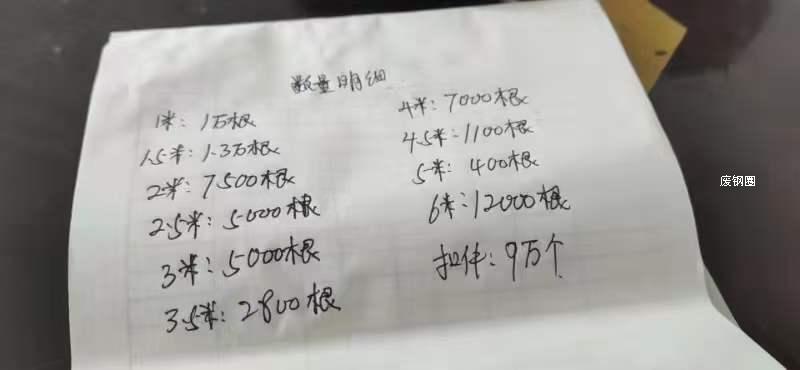 数量明细
1米：1万根
1.5米：1.3万根
2米：7500根
2.5米：5000根
3米：5000根
3.5米：2800根
4米：7000根
4.5米：1100根
5米：400根
6米：12000根
扣件：9万个
废钢圈